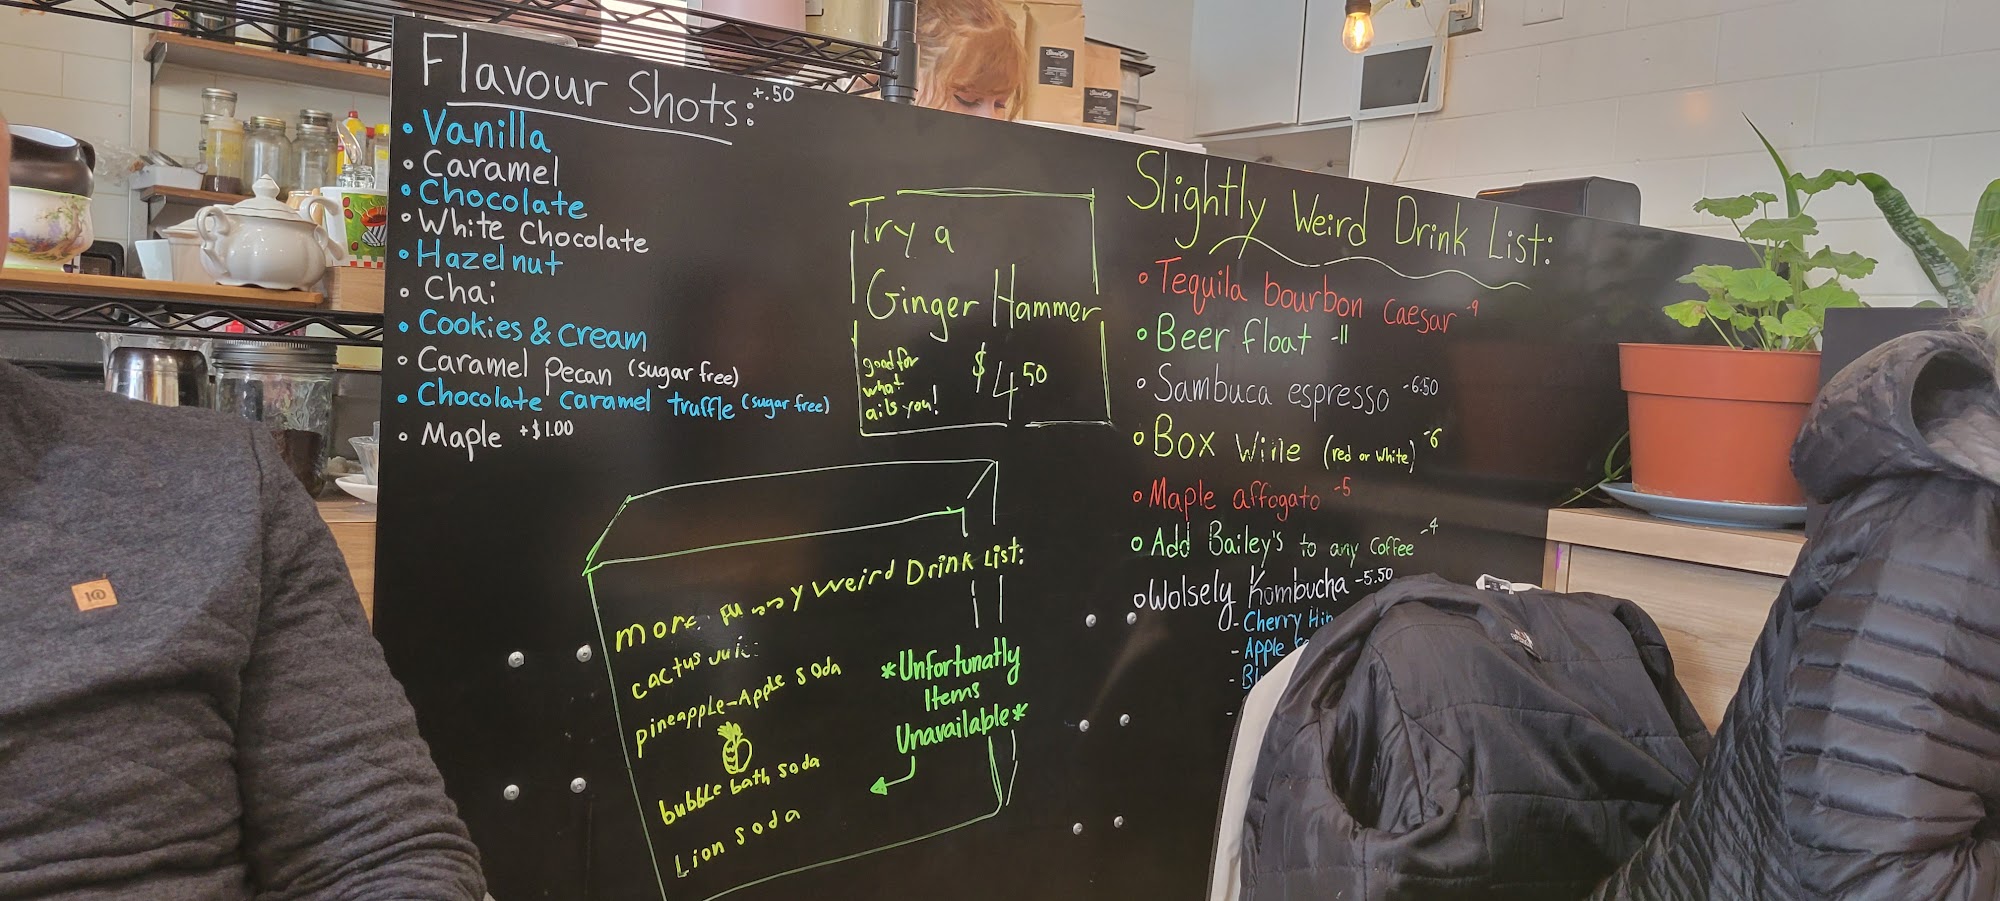 Flavour Shots: +.50
• Vanilla
• Caramel
• Chocolate
• White Chocolate
• Hazelnut
• Chai
• Cookies & Cream
• Caramel pecan (sugar free)
• Chocolate caramel truffle (sugar free)
• Maple +$1.00
Try a
Ginger Hammer
good for
what
ails you!
$4.50
More Funny Weird Drink List:
cactus juice
pineapple-Apple soda
bubble bath soda
Lion soda
*Unfortunatly
Items
Unavailable*
Slightly Weird Drink List:
• Tequila bourbon caesar -9
• Beer float -11
• Sambuca espresso -6.50
• Box Wine (red or white) -6
• Maple affogato -5
• Add Bailey's to any Coffee -4
• Wolsely Kombucha -5.50
- Cherry
- Apple